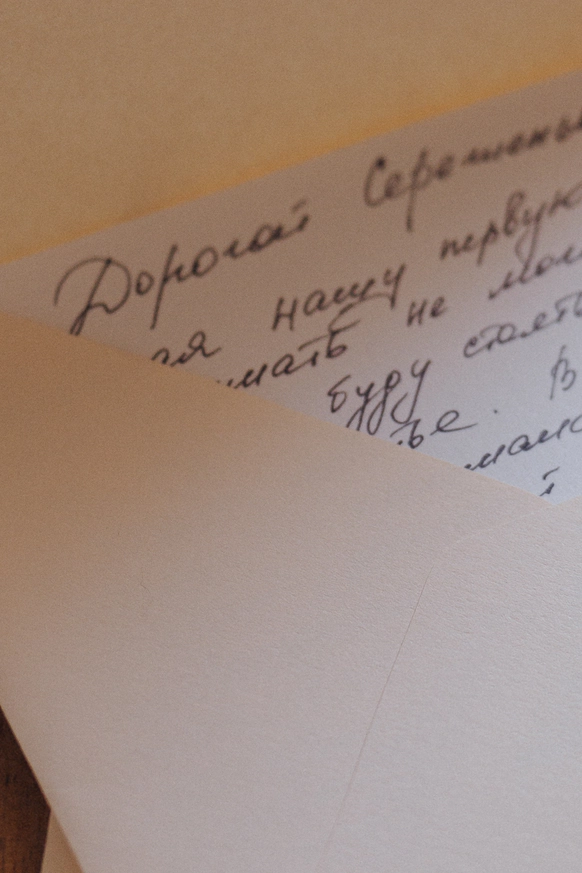 Дорогой Сереженьк
ая нашу первую
мать не мог
буду стоять
ье. В
мамо
й